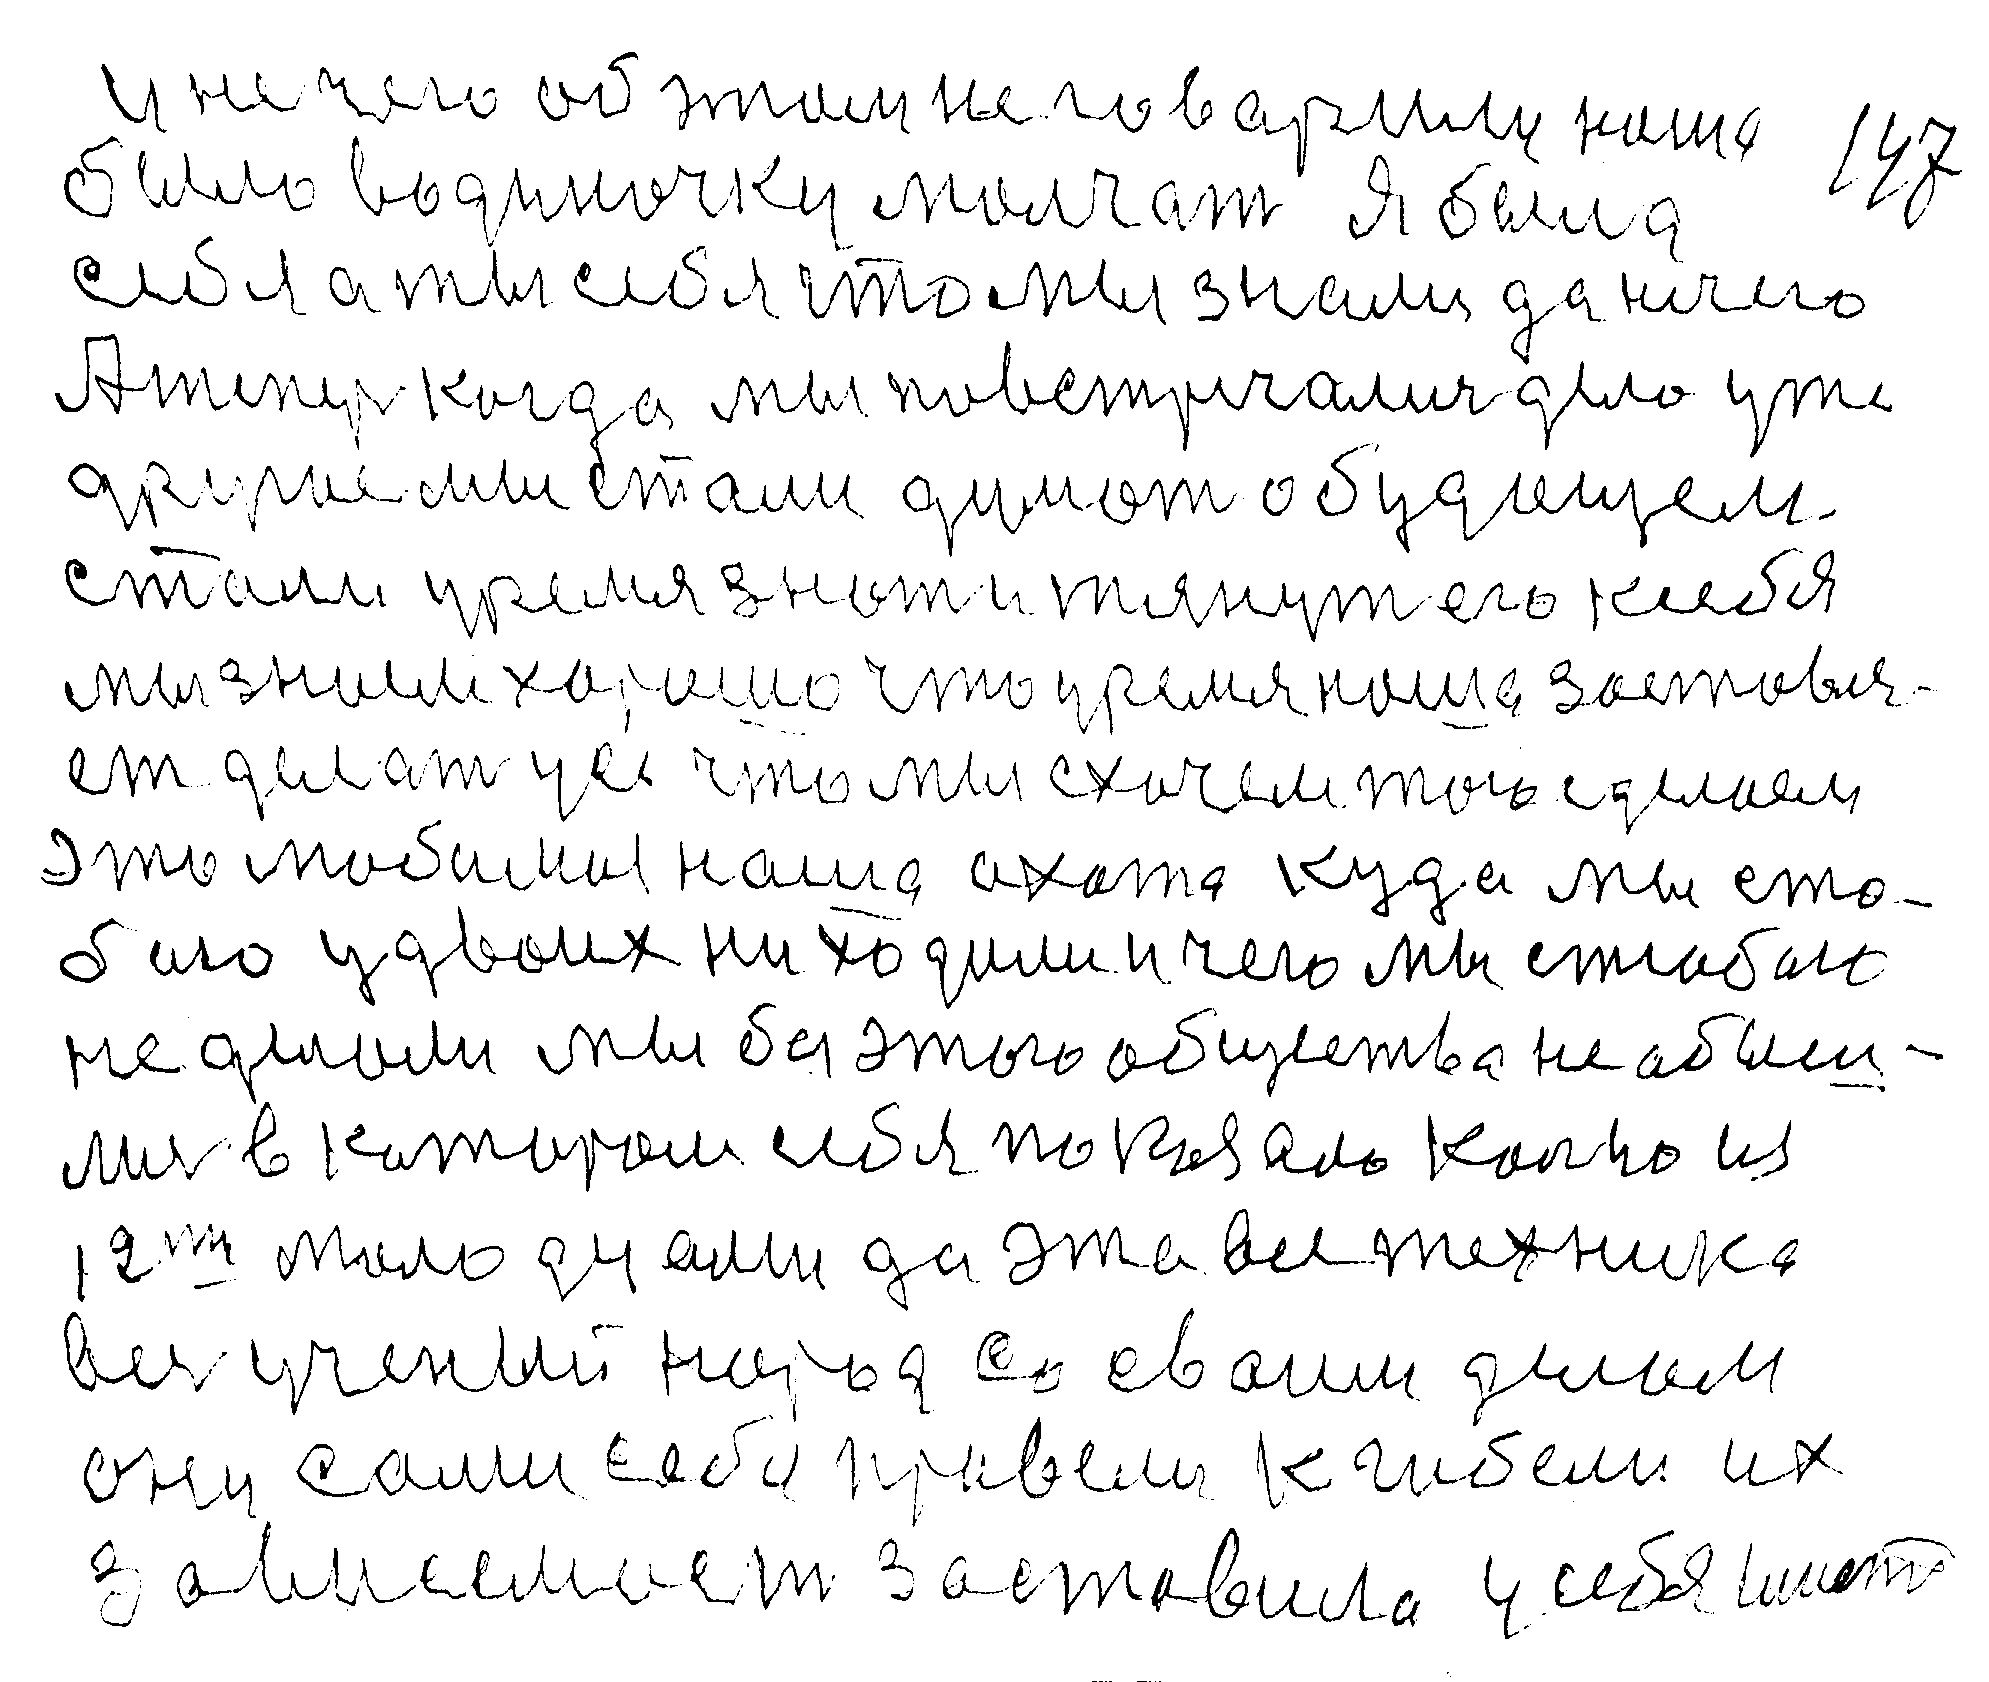 и не чего об этом не говарили наша 147
было водиночку молчат я была
себя а ты себя что мы знали да ничего
А тепер когда мы повстричались дело уже
другое мы стали думат о будущем
стали уремя знат и тянут его к себя
мы знаем хорошо что уремя наша заставля-
ет делат усе что мы схочем того сделаем
это любимая наша охота куда мы сто-
бою удвоих ни ходили и чего мы стобою
не делали мы без этого общества не обош-
лись в котором себя показало кольцо из
12ти молодчеами да эта вся техника
вся ученый народ со сваим делом
они сами себя привели к гибели их
зависемаст заставила у себя имет